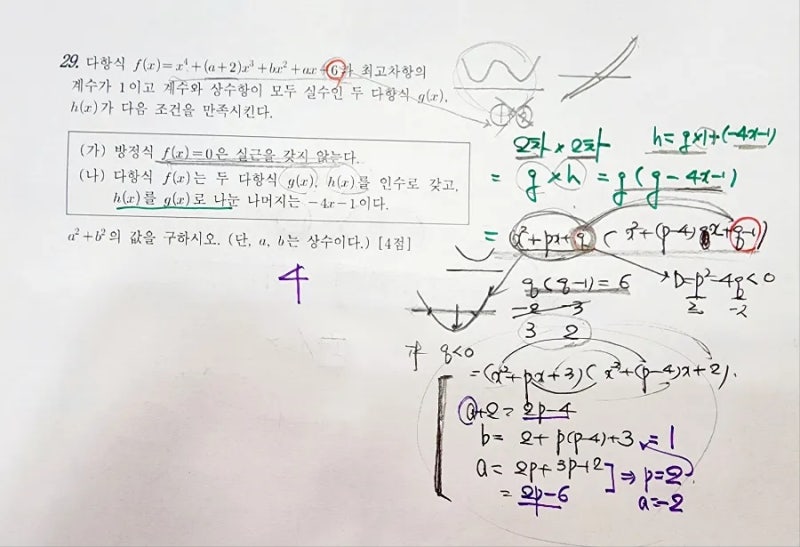 29. 다항식 f(x)=x⁴+(a+2)x³+bx²+ax+6과 최고차항의
계수가 1이고 계수와 상수항이 모두 실수인 두 다항식 g(x),
h(x)가 다음 조건을 만족시킨다.
(가) 방정식 f(x)=0은 실근을 갖지 않는다.
(나) 다항식 f(x)는 두 다항식 g(x), h(x)를 인수로 갖고,
h(x)를 g(x)로 나눈 나머지는 -4x-1이다.
a²+b²의 값을 구하시오. (단, a, b는 상수이다.) [4점]
4
2차 × 2차
h = g×1+(-4x-1)
= g × h = g(g-4x-1)
= (x²+px+q)(x²+(p-4)x+q-1)
q(q-1)=6
D=p²-4q<0
2 -2
-2 -3
3 2
q<0
=(x²+px+3)(x²+(p-4)x+2).
a+2= 2p-4
b= 2+p(p-4)+3 = 1
a= 2p+3p-12 ⇒ p=2
= 2p-6
a=-2